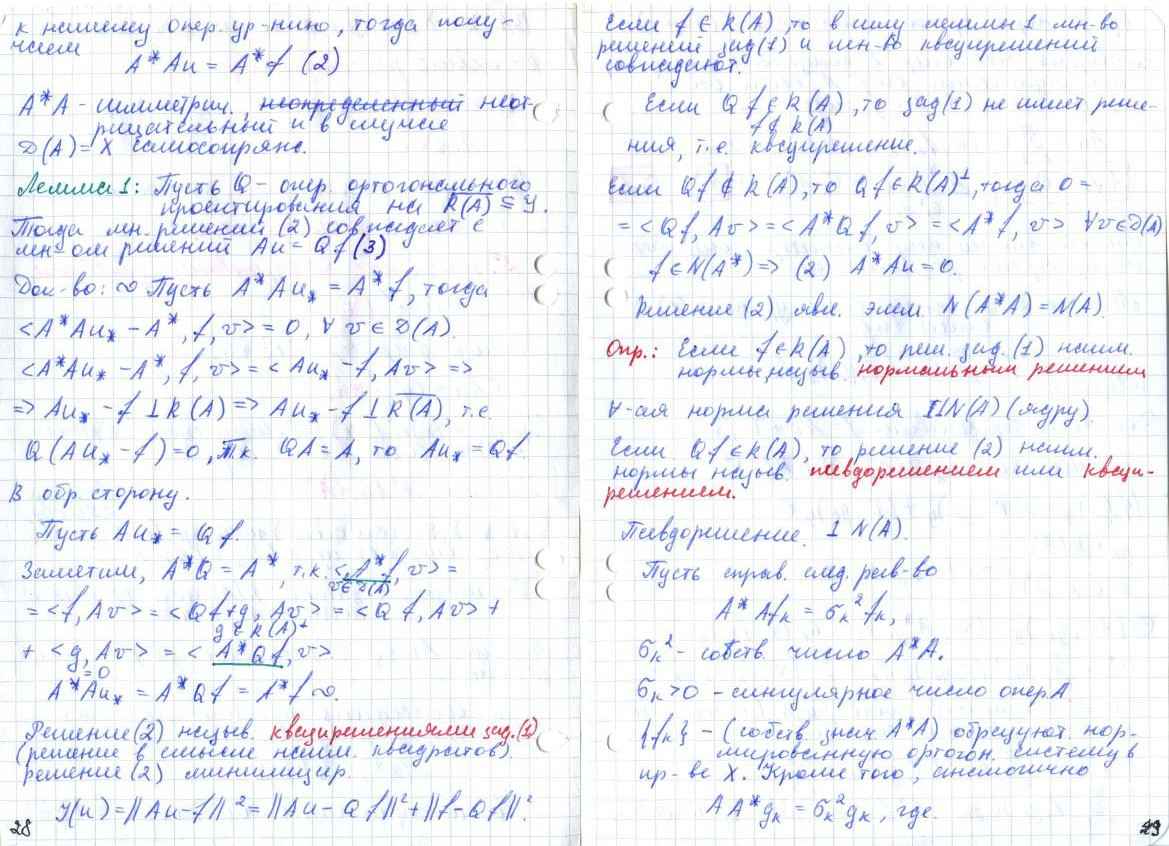 к нашему опер. ур-нию, тогда полу-
чаем
A*Au = A*f (2)
A*A - симметрич., неопределенный неот-
рицательный и в случае
D(A) = X самосопряж.
Лемма 1: Пусть Q - опер. ортогонального
проектирования на R(A) ⊆ Y.
Тогда мн. решений (2) совпадает с
мн-ом решений Au = Qf (3)
Док-во: ∾ Пусть A*Au* = A*f, тогда
<A*Au* - A*, f, v> = 0, ∀ v ∈ D(A).
<A*Au* - A*, f, v> = <Au* - f, Av> =>
=> Au* - f ⊥ R(A) => Au* - f ⊥ R(A), т.е.
Q(Au* - f) = 0, т.к. QA = A, то Au* = Qf
В обр. сторону.
Пусть Au* = Qf.
Заметим, A*Q = A*, т.к. <A*f, v> =
v∈D(A)
= <f, Av> = <Qf+g, Av> = <Qf, Av> +
g ∈ R(A)⊥
+ <g, Av> = <A*Qf, v>
=0
A*Au* = A*Qf = A*f ∾.
Решение (2) назыв. квазирешениями зад. (1)
(решение в смысле наим. квадратов).
решение (2) минимизир.
J(u) = ||Au-f||² = ||Au - Qf||² + ||f-Qf||².
28
Если f ∈ R(A), то в силу леммы 1 мн-во
решений зад (1) и мн-во квазирешений
совпадают.
Если Qf ∈ R(A), то зад (1) не имеет реше-
f ∉ R(A)
ния, т.е. квазирешение.
Если Qf ∉ R(A), то Qf ∈ R(A)⊥, тогда 0 =
= <Qf, Av> = <A*Qf, v> = <A*f, v> ∀v∈D(A)
f ∈ N(A*) => (2) A*Au = 0.
Решение (2) явл. элем. N(A*A) = N(A).
Опр.: Если f ∈ R(A), то реш. зад. (1) наим.
нормы назыв. нормальным решением
∀-ая норма решения ⊥ N(A) (ядру).
Если Qf ∈ R(A), то решение (2) наим.
нормы назыв. псевдорешением или квази-
решением.
Псевдорешение ⊥ N(A).
Пусть справ. след. рав-во
A*Afₖ = σₖ²fₖ,
σₖ² - собств. число A*A.
σₖ>0 - сингулярное число опер. A.
{fₖ} - (собств. знач A*A) образуют нор-
мированную ортогон. систему в
пр-ве X. Кроме того, аналогично
AA*gₖ = σₖ²gₖ, где.
29